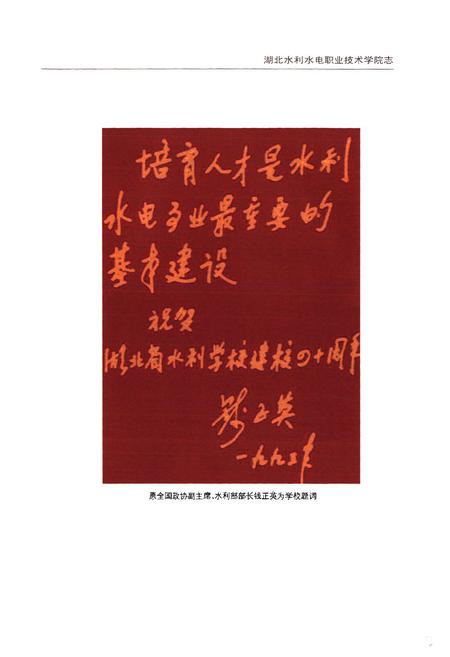 湖北水利水电职业技术学院志
培育人才是水利
水电事业最重要的
基本建设
祝贺
湖北省水利学校建校四十周年
钱正英
一九九三年
原全国政协副主席、水利部部长钱正英为学校题词